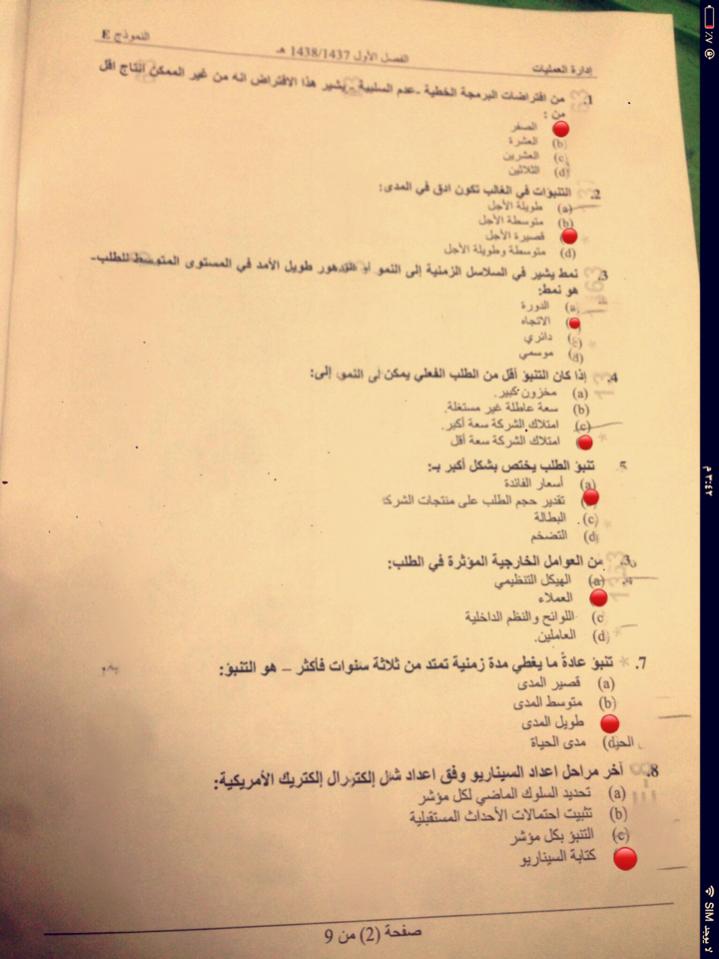 إدارة العمليات
الفصل الأول 1438/1437 هـ
النموذج E
1. من افتراضات البرمجة الخطية -عدم السلبية - يشير هذا الافتراض انه من غير الممكن انتاج اقل
من :
الصفر
(b) العشرة
(c) العشرين
(d) الثلاثين
2. التنبؤات في الغالب تكون ادق في المدى:
(a) طويلة الأجل
(b) متوسطة الأجل
قصيرة الأجل
(d) متوسطة وطويلة الأجل
3. نمط يشير في السلاسل الزمنية إلى النمو أو التدهور طويل الأمد في المستوى المتوسط للطلب-
هو نمط:
(a) الدورة
الاتجاه
(c) دائري
(d) موسمي
4. إذا كان التنبؤ أقل من الطلب الفعلي يمكن النمو إلى:
(a) مخزون كبير.
(b) سعة عاطلة غير مستغلة.
(c) امتلاك الشركة سعة أكبر.
امتلاك الشركة سعة أقل
5. تنبؤ الطلب يختص بشكل أكبر بـ:
(a) أسعار الفائدة
تقدير حجم الطلب على منتجات الشركة
(c) البطالة
(d) التضخم
من العوامل الخارجية المؤثرة في الطلب:
(a) الهيكل التنظيمي
العملاء
(c) اللوائح والنظم الداخلية
(d) العاملين.
7. تنبؤ عادةً ما يغطي مدة زمنية تمتد من ثلاثة سنوات فأكثر – هو التنبؤ:
(a) قصير المدى
(b) متوسط المدى
طويل المدى
(d) مدى الحياة
8. أخر مراحل اعداد السيناريو وفق اعداد إلكتريك الأمريكية:
(a) تحديد السلوك الماضي لكل مؤشر
(b) تثبيت احتمالات الأحداث المستقبلية
(c) التنبؤ بكل مؤشر
كتابة السيناريو
صفحة (2) من 9
٪٧
٣:٤٢ م
لا يوجد SIM